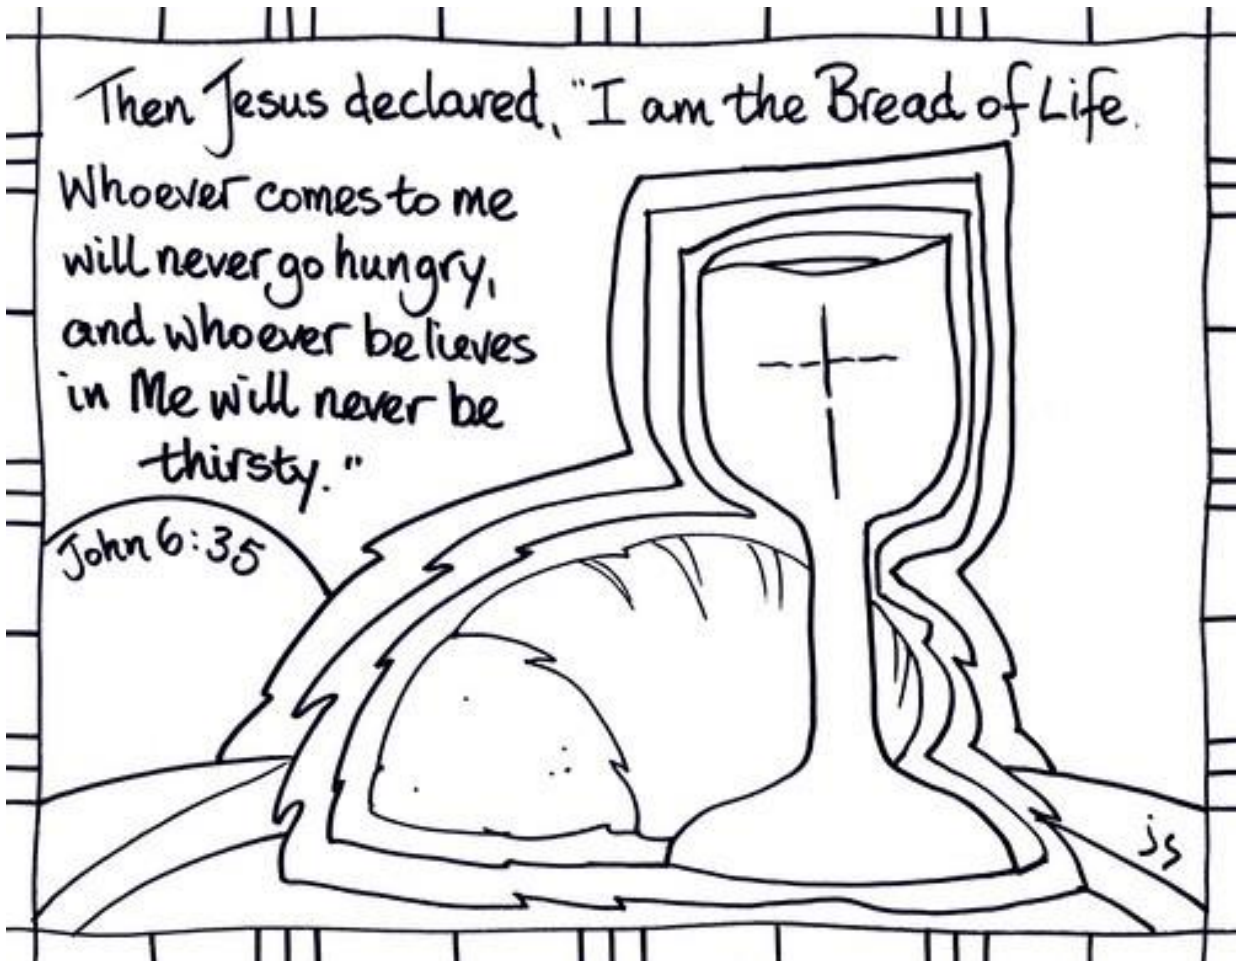 Then Jesus declared, "I am the Bread of Life.
Whoever comes to me
will never go hungry,
and whoever believes
in Me will never be
thirsty."
John 6:35
js